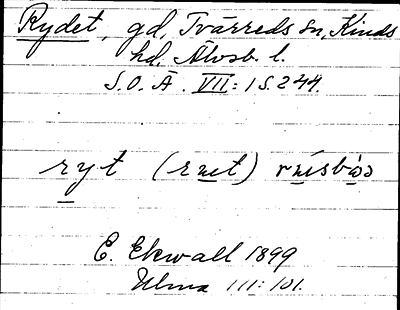 Rydet, gd, Tvärreds sn, Kinds
hd, Älvsb. l.
S.O.Ä. VII:1 S. 244.
ryt (rut)
E. Ekwall 1899
Ulma 111:101.